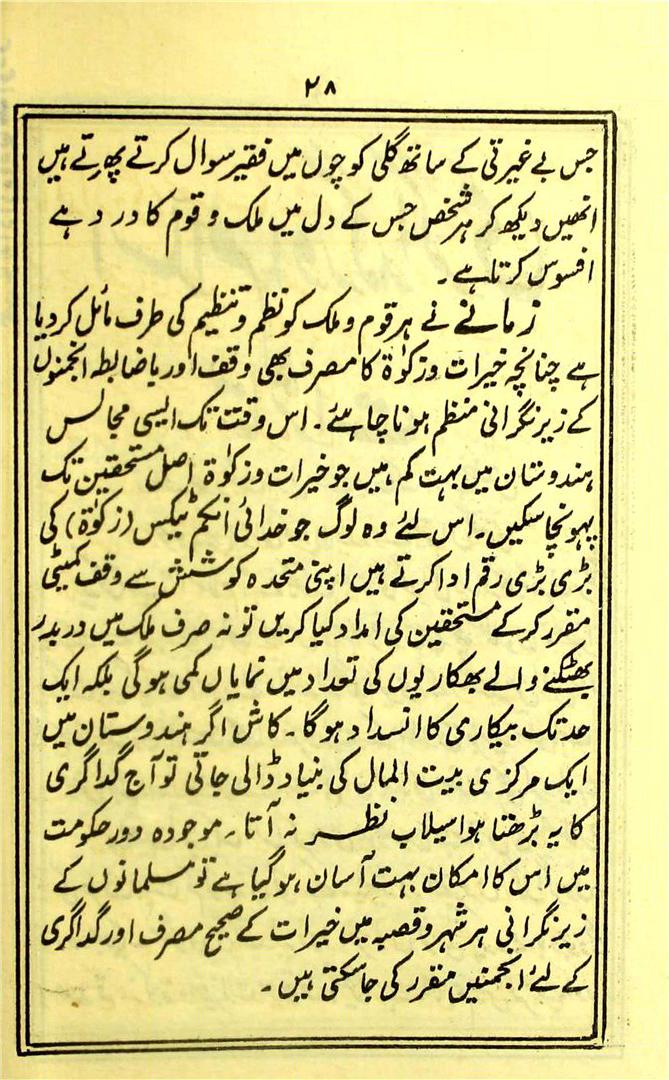 ۲۸
جس بے غیرتی کے ساتھ گلی کوچوں میں فقیر سوال کرتے پھرتے ہیں
انھیں دیکھ کر ہر شخص جس کے دل میں ملک و قوم کا درد ہے
افسوس کرتا ہے۔
زمانے نے ہر قوم و ملک کو نظم و تنظیم کی طرف مائل کر دیا
ہے چنانچہ خیرات و زکوٰۃ کا مصرف بھی وقف اور باضابطہ انجمنوں
کے زیر نگرانی منظم ہونا چاہئے۔ اس وقت تک ایسی مجالس
ہندوستان میں بہت کم ہیں جو خیرات و زکوٰۃ اصل مستحقین تک
پہونچا سکیں۔ اس لئے وہ لوگ جو خدائی انکم ٹیکس (زکوٰۃ) کی
بڑی بڑی رقم ادا کرتے ہیں اپنی متحدہ کوشش سے وقف کمیٹی
مقرر کر کے مستحقین کی امداد کیا کریں تو نہ صرف ملک میں در بدر
بھٹکنے والے بھکاریوں کی تعداد میں نمایاں کمی ہوگی بلکہ ایک
حد تک بیکاری کا انسداد ہوگا۔ کاش اگر ہندوستان میں
ایک مرکزی بیت المال کی بنیاد ڈالی جاتی تو آج گداگری
کا یہ بڑھتا ہوا سیلاب نظر نہ آتا۔ موجودہ دور حکومت
میں اس کا امکان بہت آسان ہو گیا ہے تو مسلمانوں کے
زیر نگرانی ہر شہر و قصبہ میں خیرات کے صحیح مصرف اور گداگری
کے لئے انجمنیں مقرر کی جا سکتی ہیں۔